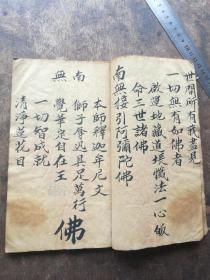 世間所有我盡見
一切無有如佛者
啟運地藏道塲懺法一心皈
命三世諸佛
南無接引阿彌陀佛
南無
本師釋迦牟尼文
獅子奮迅具足萬行
覺華定自在王
一切智成就
清淨蓮花目
佛